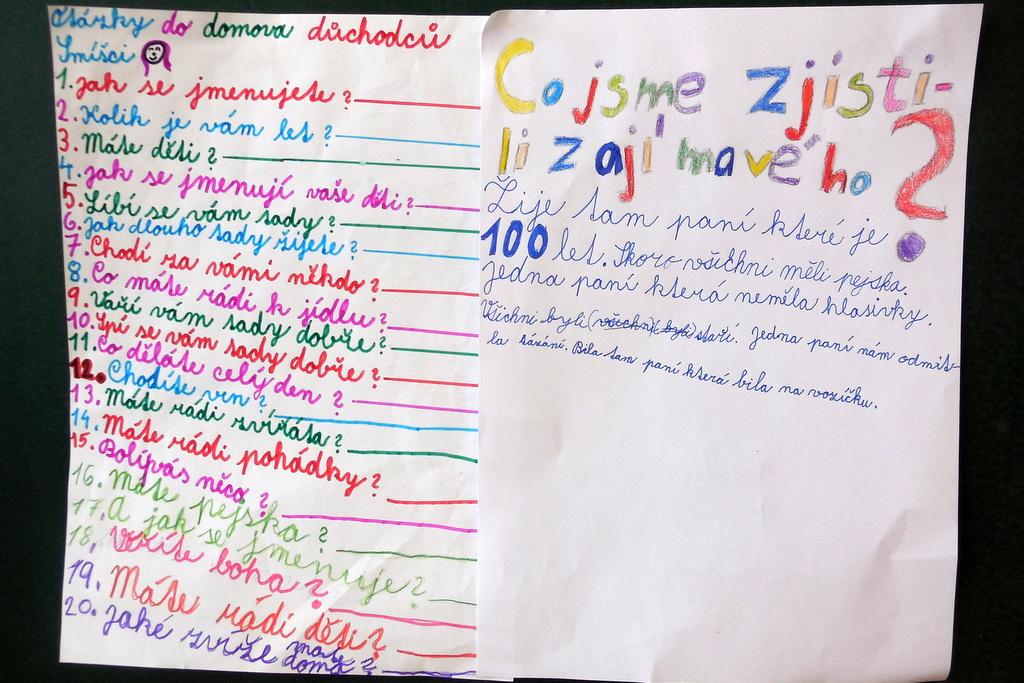 Otázky do domova důchodců
Smíšci
1. Jak se jmenujete?
2. Kolik je vám let?
3. Máte děti?
4. Jak se jmenují vaše děti?
5. Líbí se vám tady?
6. Jak dlouho tady žijete?
7. Chodí za vámi někdo?
8. Co máte rádi k jídlu?
9. Vaří vám tady dobře?
10. Spí se vám tady dobře?
11. Co děláte celý den?
12. Chodíte ven?
13. Máte rádi zvířáta?
14. Máte rádi pohádky?
15. Bolívás něco?
16. Máte pejska?
17. A jak se jmenuje?
18. Věříte boha?
19. Máte rádi děti?
20. Jaké zvíře máte doma?
Co jsme zjisti-
li zajímavého?
Žije tam paní které je
100 let. Skoro všichni měli pejska.
Jedna paní která neměla hlasivky.
Všichni byli (všichni byli) staří. Jedna paní nám odmít-
la tázání. Bila tam paní která bila na vozíčku.